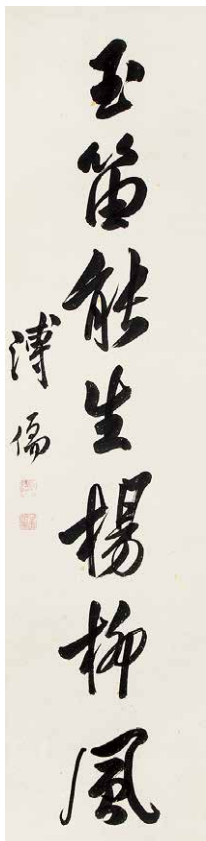 玉笛能生楊柳風
溥儒